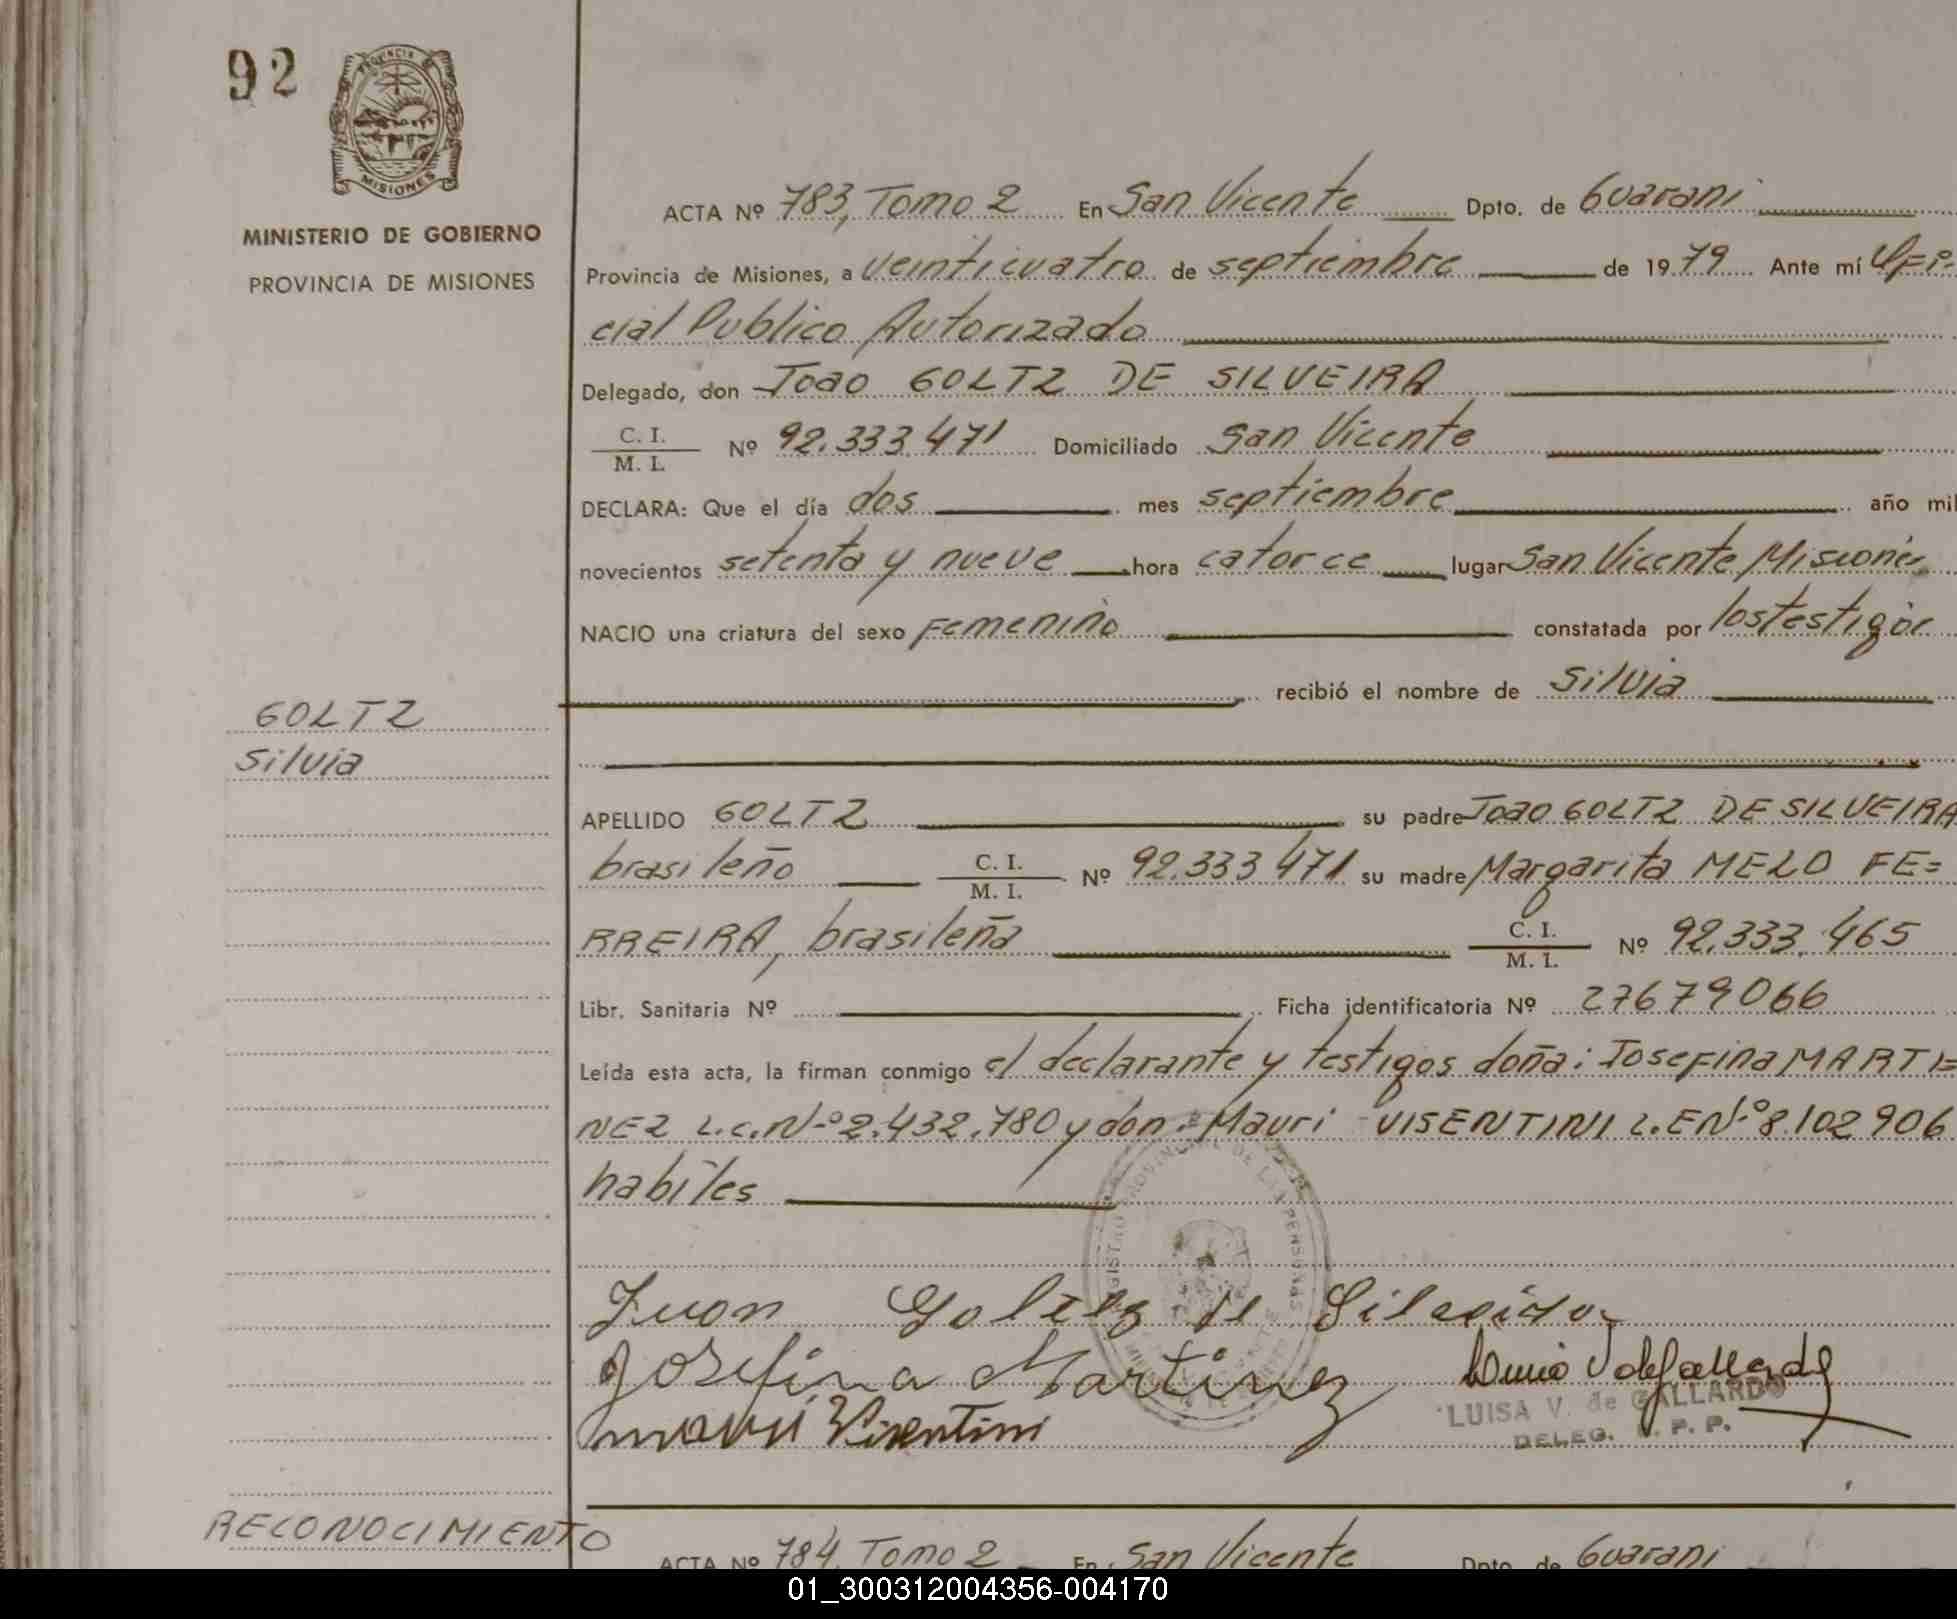 92
PROVINCIA DE
MISIONES
MINISTERIO DE GOBIERNO
PROVINCIA DE MISIONES
ACTA Nº 783, Tomo 2 En San Vicente Dpto. de Guarani
Provincia de Misiones, a veinticuatro de septiembre de 1979 Ante mí Ofi=
cial Publico Autorizado
Delegado, don Joao GOLTZ DE SILVEIRA
C. I.
M. I.
Nº 92.333.471 Domiciliado San Vicente
DECLARA: Que el día dos mes septiembre año mil
novecientos setenta y nueve hora catorce lugar San Vicente Misiones
NACIO una criatura del sexo Femenino constatada por los testigos
recibió el nombre de Silvia
GOLTZ
Silvia
APELLIDO GOLTZ su padre Joao GOLTZ DE SILVEIRA
brasileño C. I. M. I. Nº 92.333.471 su madre Margarita MELO FE=
RREIRA, brasileña C. I. M. I. Nº 92.333.465
Libr. Sanitaria Nº Ficha identificatoria Nº 27679066
Leída esta acta, la firman conmigo el declarante y testigos doña: Josefina MARTI=
NEZ L.C.Nº 2.432.780 y don: Mauri VISENTINI L.E Nº 8.102 906
habiles
Juan Goltz de Silveira
Josefina Martinez
Mauri Visentini
LUISA V. de GALLARDO
DELEG. R. P. P.
RECONOCIMIENTO
ACTA Nº 784, Tomo 2 En San Vicente Dpto. de Guarani
01_300312004356-004170